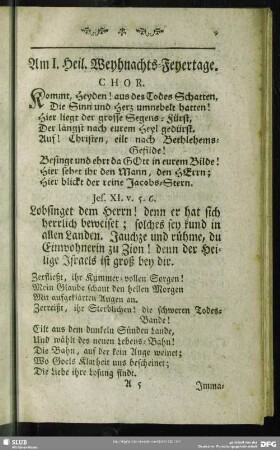 Am I. Heil. Weyhnachts-Feyertage.
CHOR.
Kommt, Heyden! aus des Todes Schatten,
Die Sinn und Herz umnebelt hatten!
Hier liegt der grosse Segens-Fürst,
Der längst nach eurem Heyl gedürst.
Auf! Christen, eilt nach Bethlehems-
Gefilde!
Besingt und ehrt da GOtt in eurem Bilde!
Hier sehet ihr den Mann, den HErrn;
Hier blickt der reine Jacobs-Stern.
Jes. XI. v. 5. 6.
Lobsinget dem Herrn! denn er hat sich
herrlich beweiset; solches sey kund in
allen Landen. Jauchze und rühme, du
Einwohnerin zu Zion! denn der Hei-
lige Israels ist groß bey dir.
Zerfließt, ihr Kummer-vollen Sorgen!
Mein Glaube schaut den hellen Morgen
Mit aufgeklärten Augen an.
Zerreißt, ihr Sterblichen! die schweren Todes-
Bande!
Eilt aus dem dunkeln Sünden Lande,
Und wählt des neuen Lebens-Bahn!
Die Bahn, auf der kein Auge weinet;
Wo Goels Klarheit uns bescheinet;
Die Liebe ihre Losung findt.
A 5 Imma-
SLUB